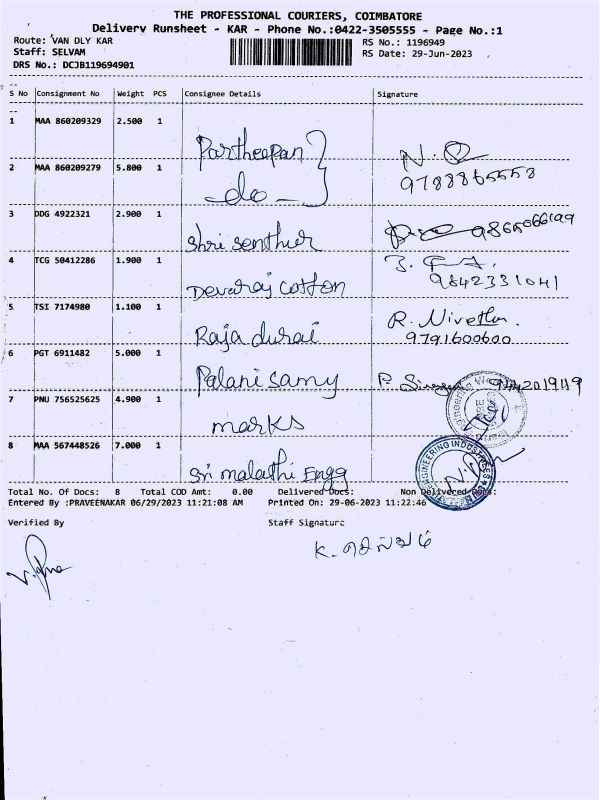 THE PROFESSIONAL COURIERS, COIMBATORE
Delivery Runsheet - KAR - Phone No.:0422-3505555 - Page No.:1
Route: VAN DLY KAR
RS No.: 1196949
Staff: SELVAM
RS Date: 29-Jun-2023
DRS No.: DCJB119694901
S No Consignment No Weight PCS Consignee Details Signature
1 MAA 860209329 2.500 1 Partheepan
2 MAA 860209279 5.800 1 do N. 9788865558
3 DDG 4922321 2.900 1 Shri senthur 9865066199
4 TCG 50412286 1.900 1 Devaraj cotton 9842331041
5 TSI 7174980 1.100 1 Raja durai R. Nivetha. 9791600600
6 PGT 6911482 5.000 1 Palani samy P. 9442019119
7 PNU 756525625 4.900 1 marks
8 MAA 567448526 7.000 1 Sri malathi Engg
ENGINEERING INDUSTRIES
Total No. Of Docs: 8 Total COD Amt: 0.00 Delivered Docs: Non Delivered Docs:
Entered By :PRAVEENAKAR 06/29/2023 11:21:08 AM Printed On: 29-06-2023 11:22:46
Verified By Staff Signature
K. செல்வம்